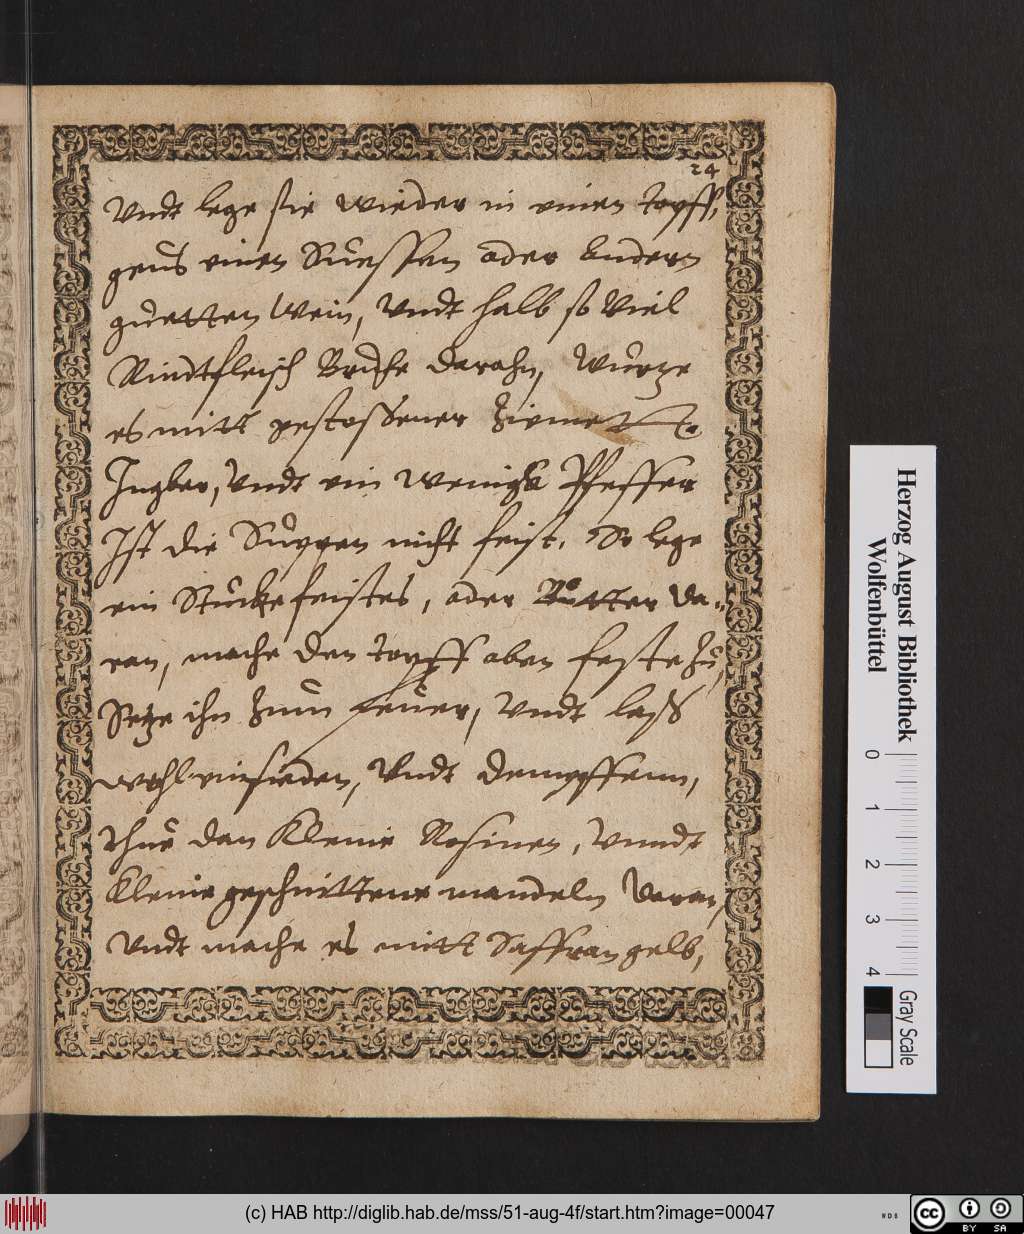 24
Vndt lege sie wieder in einen topff,
geus einen Suessen oder andern
guetten Wein, Vndt halb so Viel
Rindtfleisch Bruhe darahn, Wurtze
es mitt gestossener Zimet
Ingber, Vndt ein wenigk Pfeffer
Ist die Suppen nicht feist, So lege
ein Stucke feistes, oder Butter da-
ran, mache den topff oben feste zu,
Setze ihn zum feuer, Vndt lass
wohl einsieden, Vndt dempffenn,
thue dan Kleine Rosinen, Vnndt
kleine geschnittene mandeln daran,
Vndt mache es mitt Saffran gelb,
Herzog August Bibliothek
Wolfenbüttel
0 1 2 3 4
Gray Scale
(c) HAB http://diglib.hab.de/mss/51-aug-4f/start.htm?image=00047
WDB
cc BY SA